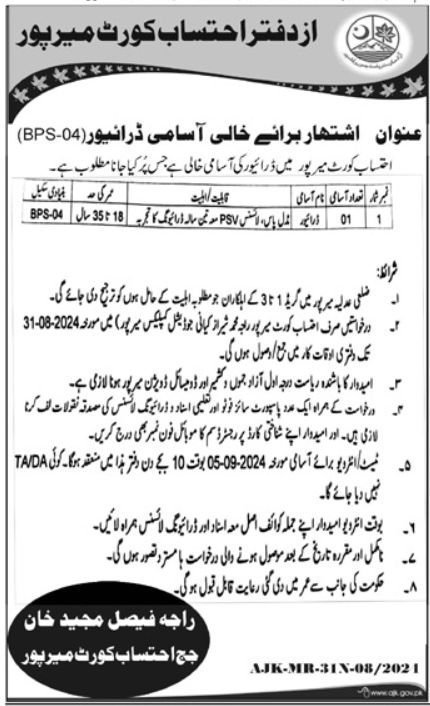 از دفتر احتساب کورٹ میرپور
عنوان اشتہار برائے خالی آسامی ڈرائیور (BPS-04)
احتساب کورٹ میرپور میں ڈرائیور کی آسامی خالی ہے جس پُر کیا جانا مطلوب ہے۔
نمبر شمار تعداد آسامی نام آسامی قابلیت/اہلیت عمر کی حد بنیادی سکیل
1 01 ڈرائیور مڈل پاس، لائسنس PSV معہ تین سالہ ڈرائیونگ کا تجربہ 18 تا 35 سال BPS-04
شرائط:
۱۔ ضلعی عدلیہ میرپور میں گریڈ 1 تا 3 کے اہلکاران جو مطلوبہ اہلیت کے حامل ہوں کو ترجیح دی جائے گی۔
۲۔ درخواستیں صرف احتساب کورٹ میرپور راجہ محمد شیراز کیانی جوڈیشل کمپلیکس میرپور) میں مورخہ 31-08-2024
تک دفتری اوقات کار میں جمع/وصول ہوں گی۔
۳۔ امیدوار کا باشندہ ریاست درجہ اول آزاد جموں و کشمیر اور ڈومیسائل ڈویژن میرپور ہونا لازمی ہے۔
۴۔ درخواست کے ہمراہ ایک عدد پاسپورٹ سائز فوٹو اور تعلیمی اسناد و ڈرائیونگ لائسنس کی مصدقہ نقولات لف کرنا
لازمی ہیں۔ اور امیدوار اپنے شناختی کارڈ پر رجسٹرڈ سم کا موبائل فون نمبر بھی درج کریں۔
۵۔ ٹیسٹ/انٹرویو برائے آسامی مورخہ 05-09-2024 بوقت 10 بجے دن دفتر ہذا میں منعقد ہوگا۔ کوئی TA/DA
نہیں دیا جائے گا۔
۶۔ بوقت انٹرویو امیدوار اپنے جملہ کوائف اصل معہ اسناد اور ڈرائیونگ لائسنس ہمراہ لائیں۔
۷۔ نامکمل اور مقررہ تاریخ کے بعد موصول ہونے والی درخواست ہا مسترد تصور ہوں گی۔
۸۔ حکومت کی جانب سے عمر میں دی گئی رعایت قابل قبول ہو گی۔
راجہ فیصل مجید خان
جج احتساب کورٹ میرپور
AJK-MR-31N-08/2024
www.ajk.gov.pk